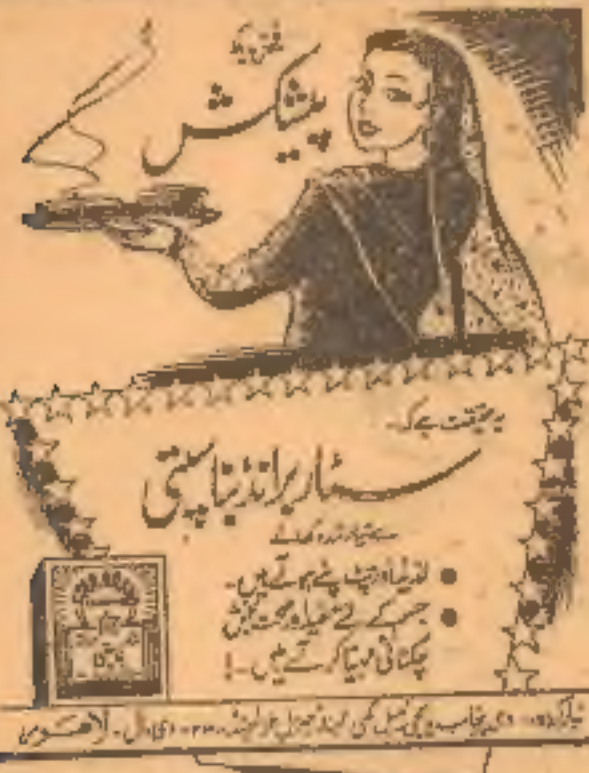 فخریہ
پیشکش
یہ حقیقت ہے کہ۔
سٹار برانڈ بناسپتی
سے تیار شدہ کھانے
● لذیذ اور چٹ پٹے ہوتے ہیں۔
● جسم کے لئے مفید اور صحت بخش
چکنائی مہیا کرتے ہیں۔!
تیار کردہ:۔ دی پنجاب ویجی ٹیبل گھی اینڈ جنرل ملز لمیٹڈ۔ مال۔ لاہور